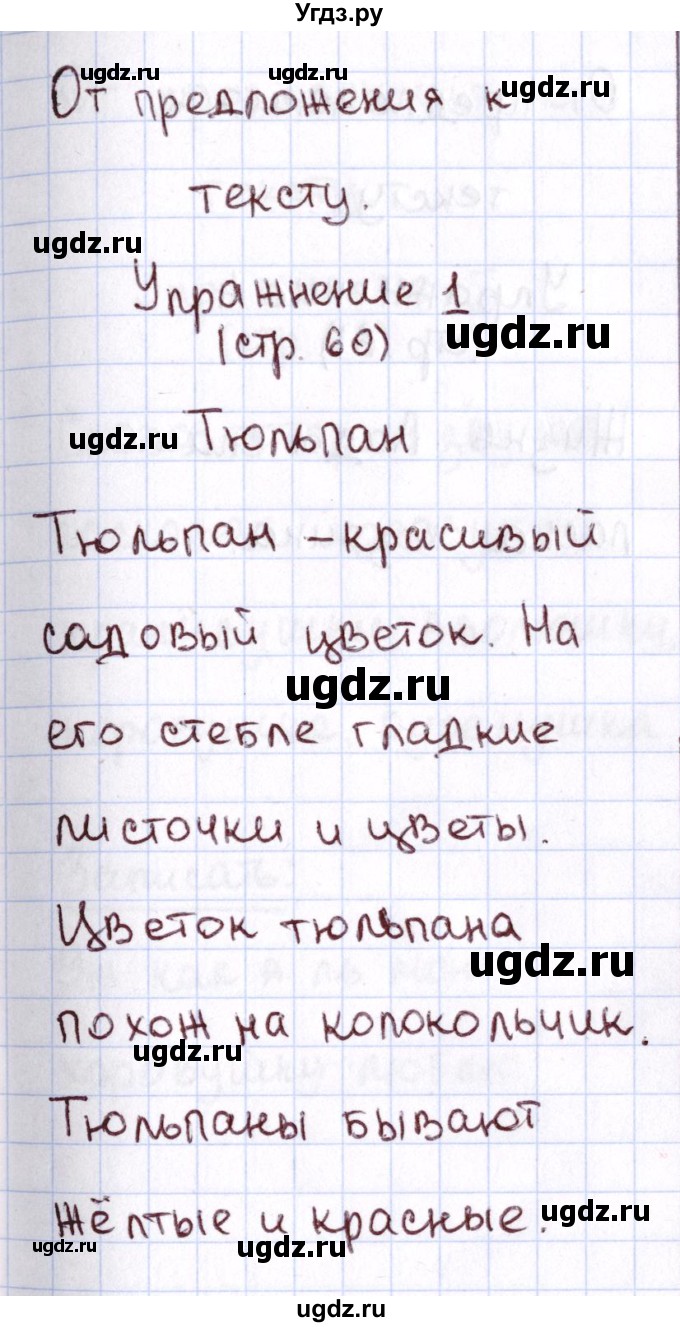 Угдз.ру
ugdz.ru ugdz.ru ugdz.ru
От предложения к
тексту.
ugdz.ru
Упражнение 1
(стр. 60) ugdz.ru
ugdz.ru Тюльпан
Тюльпан - красивый
садовый цветок. На
ugdz.ru
его стебле гладкие
листочки и цветы.
Цветок тюльпана
ugdz.ru
похож на колокольчик.
ugdz.ru
Тюльпаны бывают
жёлтые и красные.
ugdz.ru
ugdz.ru ugdz.ru
ugdz.ru